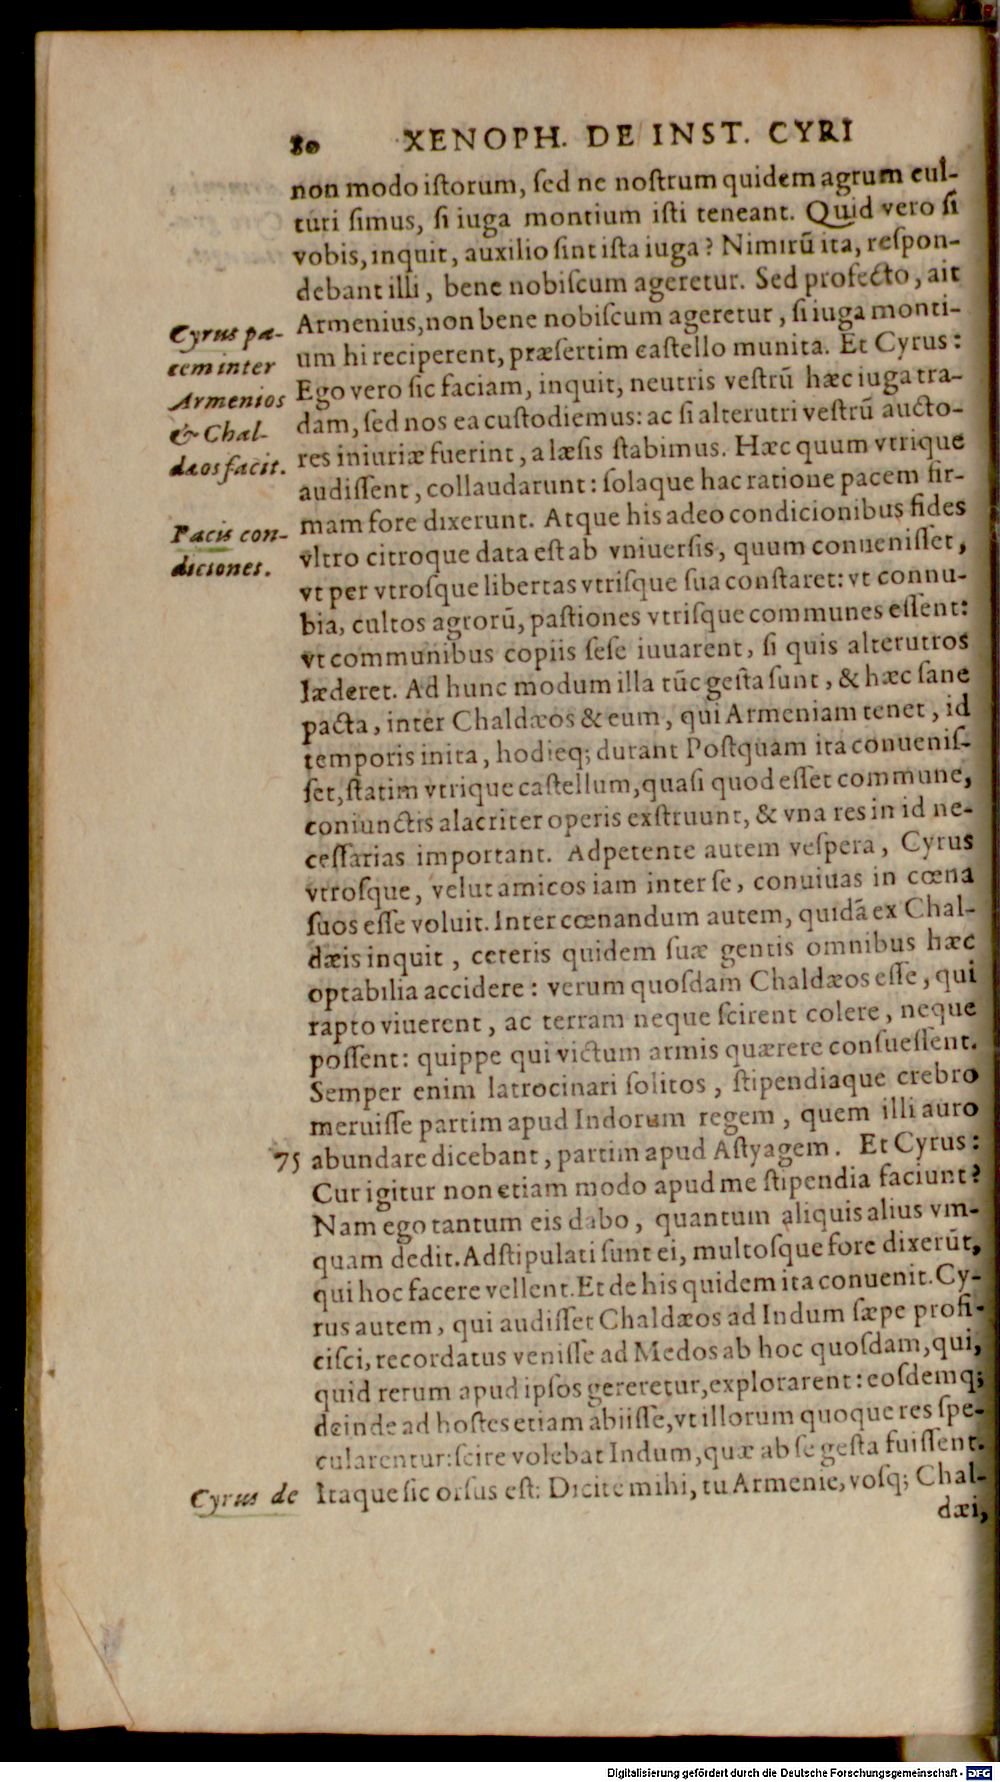 80 XENOPH. DE INST. CYRI
non modo istorum, sed ne nostrum quidem agrum cul-
turi simus, si iuga montium isti teneant. Quid vero si
vobis, inquit, auxilio sint ista iuga? Nimirū ita, respon-
debant illi, bene nobiscum ageretur. Sed profecto, ait
Armenius, non bene nobiscum ageretur, si iuga monti-
um hi reciperent, præsertim castello munita. Et Cyrus:
Ego vero sic faciam, inquit, neutris vestrū hæc iuga tra-
dam, sed nos ea custodiemus: ac si alterutri vestrū aucto-
res iniuriæ fuerint, a læsis stabimus. Hæc quum vtrique
audissent, collaudarunt: solaque hac ratione pacem fir-
mam fore dixerunt. Atque his adeo condicionibus fides
vltro citroque data est ab vniuersis, quum conuenisset,
vt per vtrosque libertas vtrisque sua constaret: vt connu-
bia, cultos agrorū, pastiones vtrisque communes essent:
vt communibus copiis sese iuuarent, si quis alterutros
læderet. Ad hunc modum illa tūc gesta sunt, & hæc sane
pacta, inter Chaldæos & eum, qui Armeniam tenet, id
temporis inita, hodieq; durant Postquam ita conuenis-
set, statim vtrique castellum, quasi quod esset commune,
coniunctis alacriter operis exstruunt, & vna res in id ne-
cessarias important. Adpetente autem vespera, Cyrus
vtrosque, velut amicos iam inter se, conuiuas in cœna
suos esse voluit. Inter cœnandum autem, quidā ex Chal-
dæis inquit, ceteris quidem suæ gentis omnibus hæc
optabilia accidere: verum quosdam Chaldæos esse, qui
rapto viuerent, ac terram neque scirent colere, neque
possent: quippe qui victum armis quærere consuessent.
Semper enim latrocinari solitos, stipendiaque crebro
meruisse partim apud Indorum regem, quem illi auro
75 abundare dicebant, partim apud Astyagem. Et Cyrus:
Cur igitur non etiam modo apud me stipendia faciunt?
Nam ego tantum eis dabo, quantum aliquis alius vm-
quam dedit. Adstipulati sunt ei, multosque fore dixerūt,
qui hoc facere vellent. Et de his quidem ita conuenit. Cy-
rus autem, qui audisset Chaldæos ad Indum sæpe profi-
cisci, recordatus venisse ad Medos ab hoc quosdam, qui,
quid rerum apud ipsos gereretur, explorarent: eosdemq;
deinde ad hostes etiam abiisse, vt illorum quoque res spe-
cularentur: scire volebat Indum, quæ ab se gesta fuissent.
Itaque sic orsus est: Dicite mihi, tu Armenie, vosq; Chal-
dæi,
Cyrus pa-
cem inter
Armenios
& Chal-
dæos facit.
Pacis con-
diciones.
Cyrus de
Digitalisierung gefördert durch die Deutsche Forschungsgemeinschaft - DFG